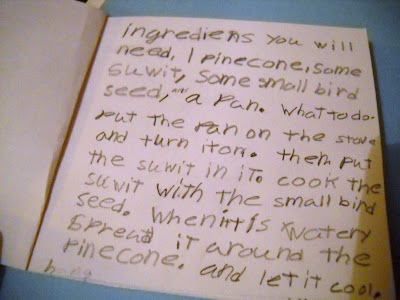 ingrediens you will
need, 1 pinecone, some
suwit, some small bird
seed, and a pan. what to do-
put the pan on the stove
and turn it on. then put
the suwit in it. cook the
suvit with the small bird
seed. when it is watery
spread it around the
pinecone. and let it cool.
hang